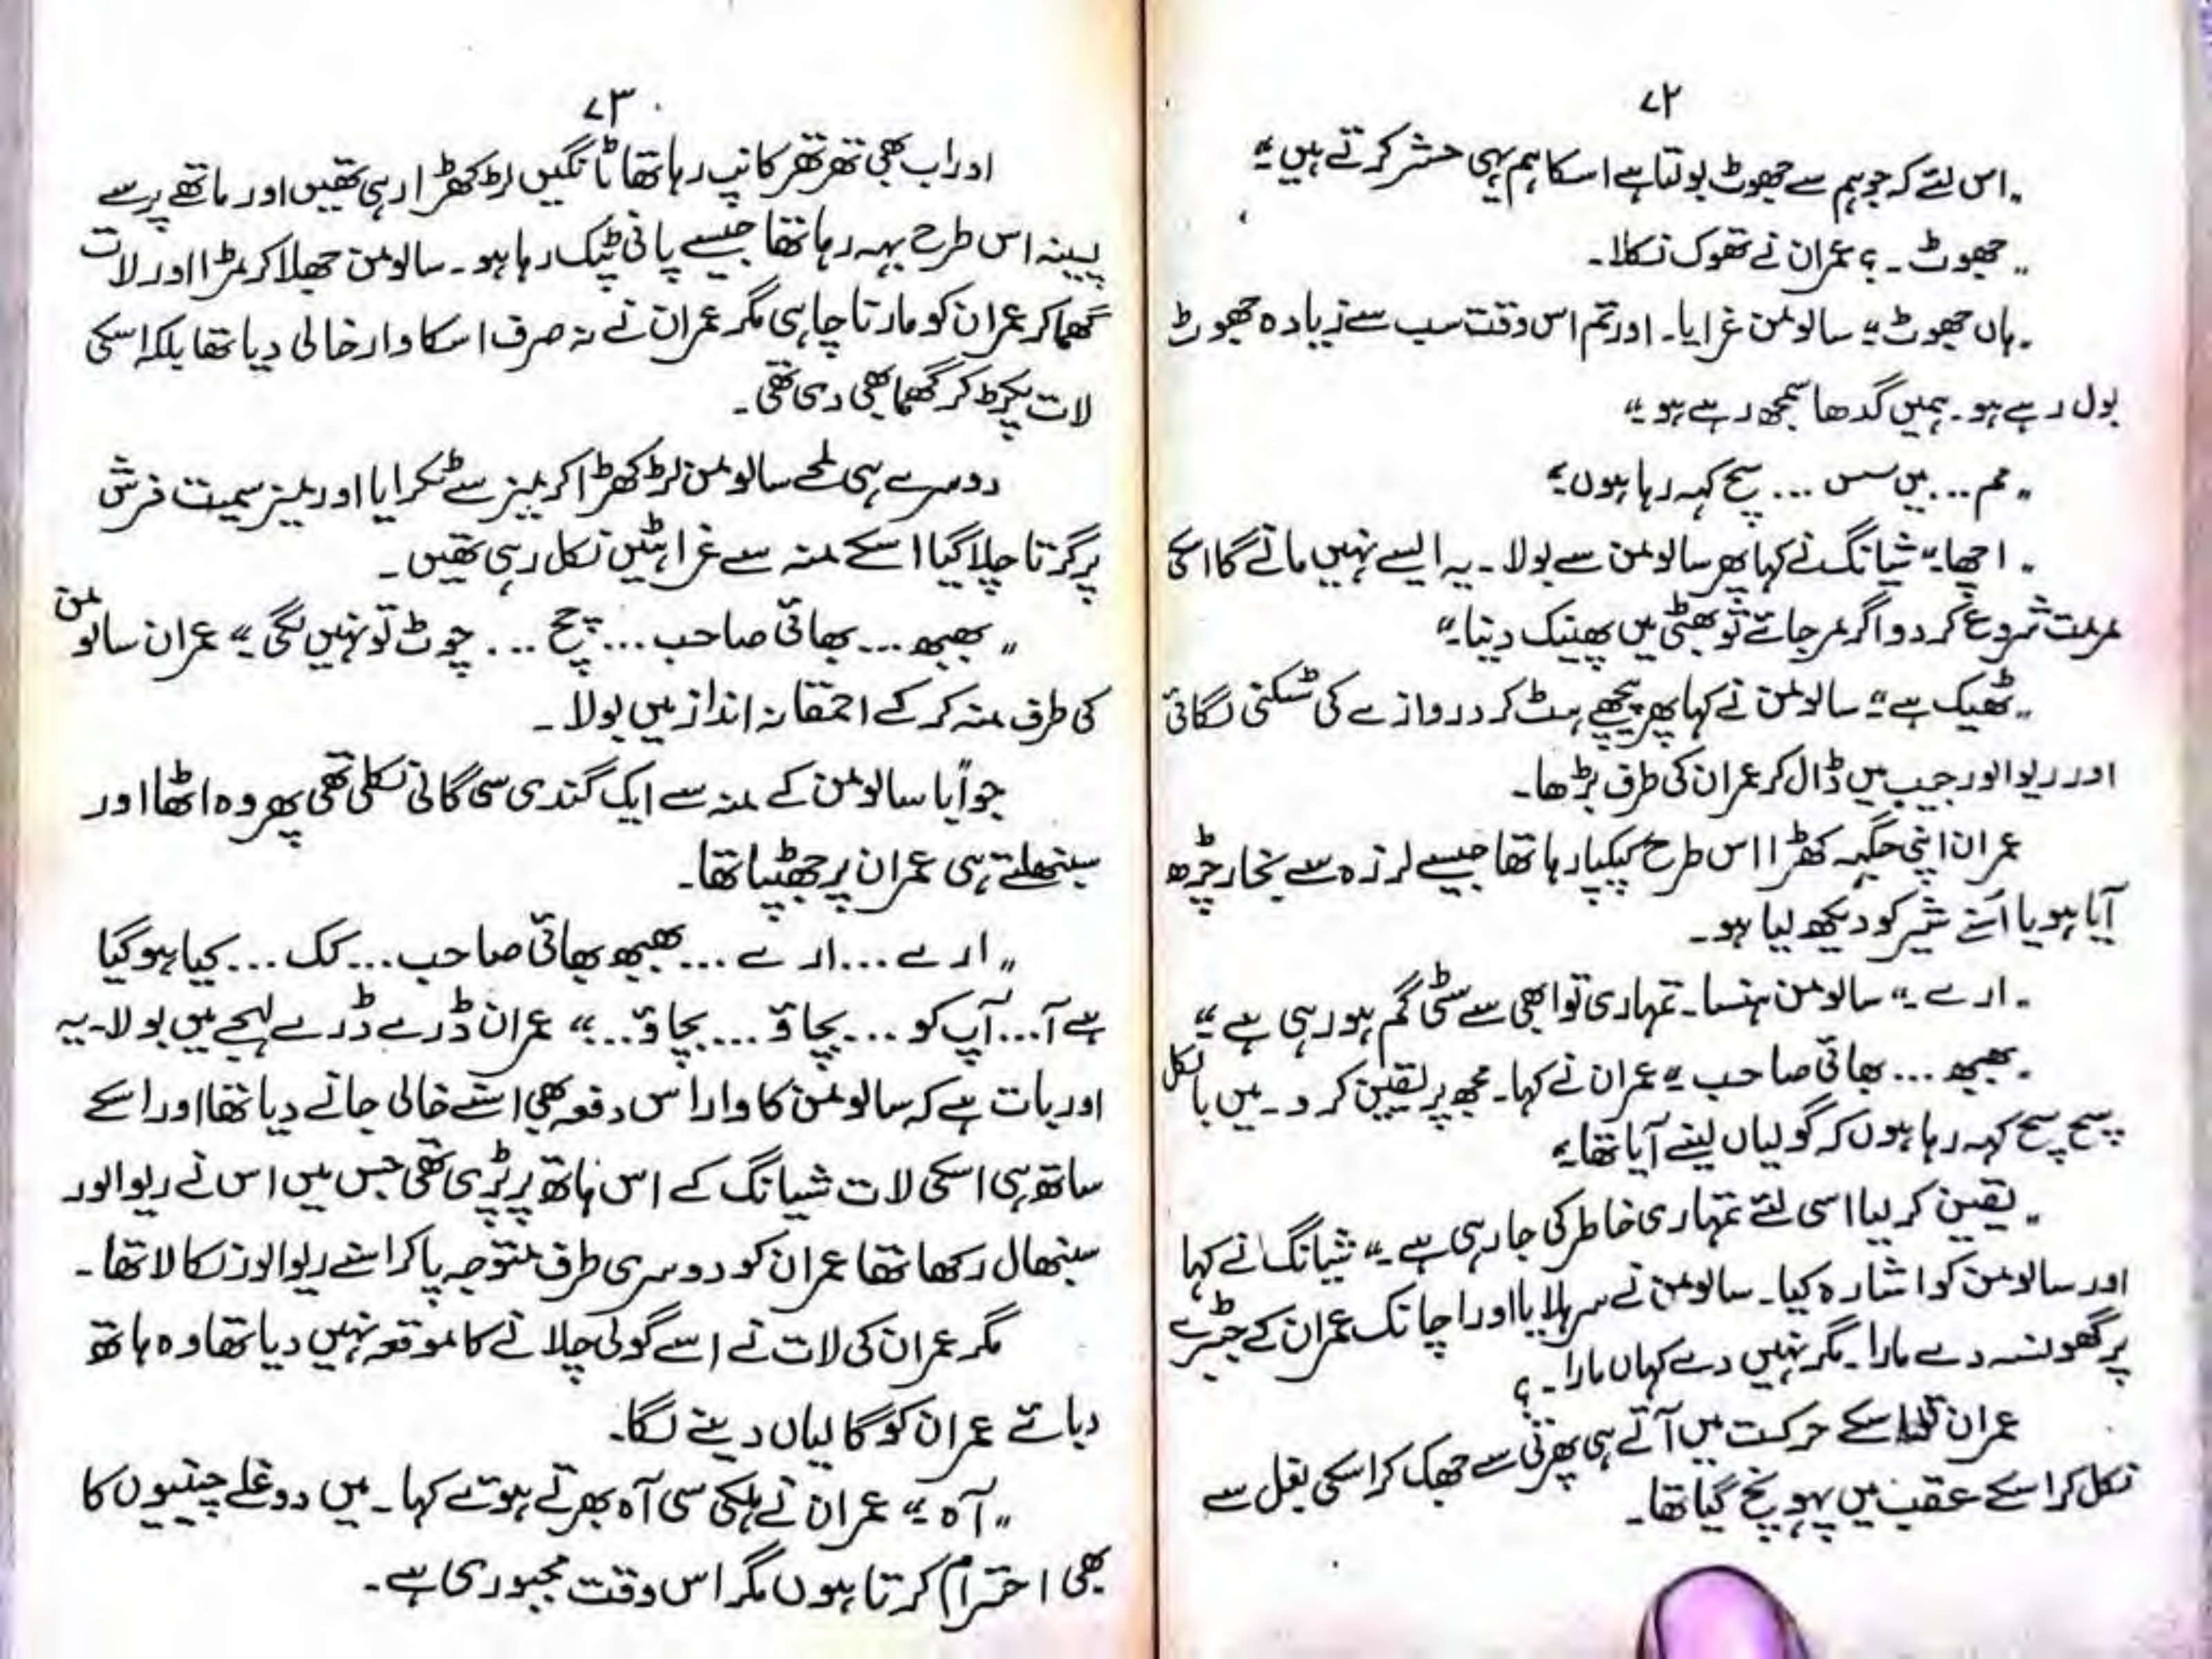 ۷۲
"اس لئے کہ جو ہم سے جھوٹ بولتا ہے اسکا ہم یہی حشر کرتے ہیں"
"جھوٹ۔؟ عمران نے تھوک نگلا۔
"ہاں جھوٹ" سالومن غرایا۔ اور تم اس وقت سب سے زیادہ جھوٹ
بول رہے ہو۔ ہمیں گدھا سمجھ رہے ہو"
"مم... میں سس... سچ کہہ رہا ہوں"
"اچھا" شیانگ نے کہا پھر سالومن سے بولا۔ یہ ایسے نہیں مانے گا اسکی
مرمت شروع کر دو اگر مر جائے تو بھٹی میں پھینک دینا"
"ٹھیک ہے" سالومن نے کہا پھر پیچھے ہٹ کر دروازے کی شٹکنی لگائی
اور ریوالور جیب میں ڈال کر عمران کی طرف بڑھا۔
عمران اپنی جگہ کھڑا اس طرح کپکپا رہا تھا جیسے لرزہ سے بخار چڑھ
آیا ہو یا اسنے شیر کو دیکھ لیا ہو۔
"ارے" سالومن ہنسا۔ تمہاری تو ابھی سے سٹی گم ہو رہی ہے"
"بھبھ... بھائی صاحب" عمران نے کہا۔ مجھ پر یقین کرو۔ میں بالکل
سچ سچ کہہ رہا ہوں کہ گولیاں لینے آیا تھا"
"یقین کر لیا اسی لئے تمہاری خاطر کی جا رہی ہے" شیانگ نے کہا
اور سالومن کو اشارہ کیا۔ سالومن نے سر ہلایا اور اچانک عمران کے جبڑے
پر گھونسہ دے مارا۔ مگر نہیں دے کہاں مارا۔؟
عمران اسکے حرکت میں آتے ہی پھرتی سے جھک کر اسکی بغل سے
نکل کر اسکے عقب میں پہونچ گیا تھا۔
۷۳
اور اب بھی تھر تھر کانپ رہا تھا ٹانگیں لڑکھڑا رہی تھیں اور ماتھے پر سے
پسینہ اس طرح بہہ رہا تھا جیسے پانی ٹپک رہا ہو۔ سالومن جھلا کر مڑا اور لات
گھما کر عمران کو مارنا چاہی مگر عمران نے نہ صرف اسکا وار خالی دیا تھا بلکہ اسکی
لات پکڑ کر گھما بھی دی تھی۔
دوسرے ہی لمحے سالومن لڑکھڑا کر میز سے ٹکرایا اور میز سمیت فرش
پر گرتا چلا گیا اسکے منہ سے غراہٹیں نکل رہی تھیں۔
"بھبھ... بھائی صاحب... چچ... چوٹ تو نہیں لگی" عمران سالومن
کی طرف منہ کر کے احمقانہ انداز میں بولا۔
جواباً سالومن کے منہ سے ایک گندی سی گالی نکلی تھی پھر وہ اٹھا اور
سنبھلتے ہی عمران پر جھپٹا تھا۔
"ارے... ارے... بھبھ بھائی صاحب... کک... کیا ہو گیا
ہے آ... آپ کو... بچاؤ... بچاؤ..." عمران ڈرے ڈرے لہجے میں بولا۔ یہ
اور بات ہے کہ سالومن کا وار اس دفعہ بھی اسنے خالی جانے دیا تھا اور اسکے
ساتھ ہی اسکی لات شیانگ کے اس ہاتھ پر پڑی تھی جس میں اس نے ریوالور
سنبھال رکھا تھا عمران کو دوسری طرف متوجہ پا کر اسنے ریوالور نکالا تھا۔
مگر عمران کی لات نے اسے گولی چلانے کا موقعہ نہیں دیا تھا وہ ہاتھ
دبائے عمران کو گالیاں دینے لگا۔
"آہ" عمران نے ہلکی سی آہ بھرتے ہوئے کہا۔ میں دوغلے چینیوں کا
بھی احترام کرتا ہوں مگر اس وقت مجبوری ہے۔